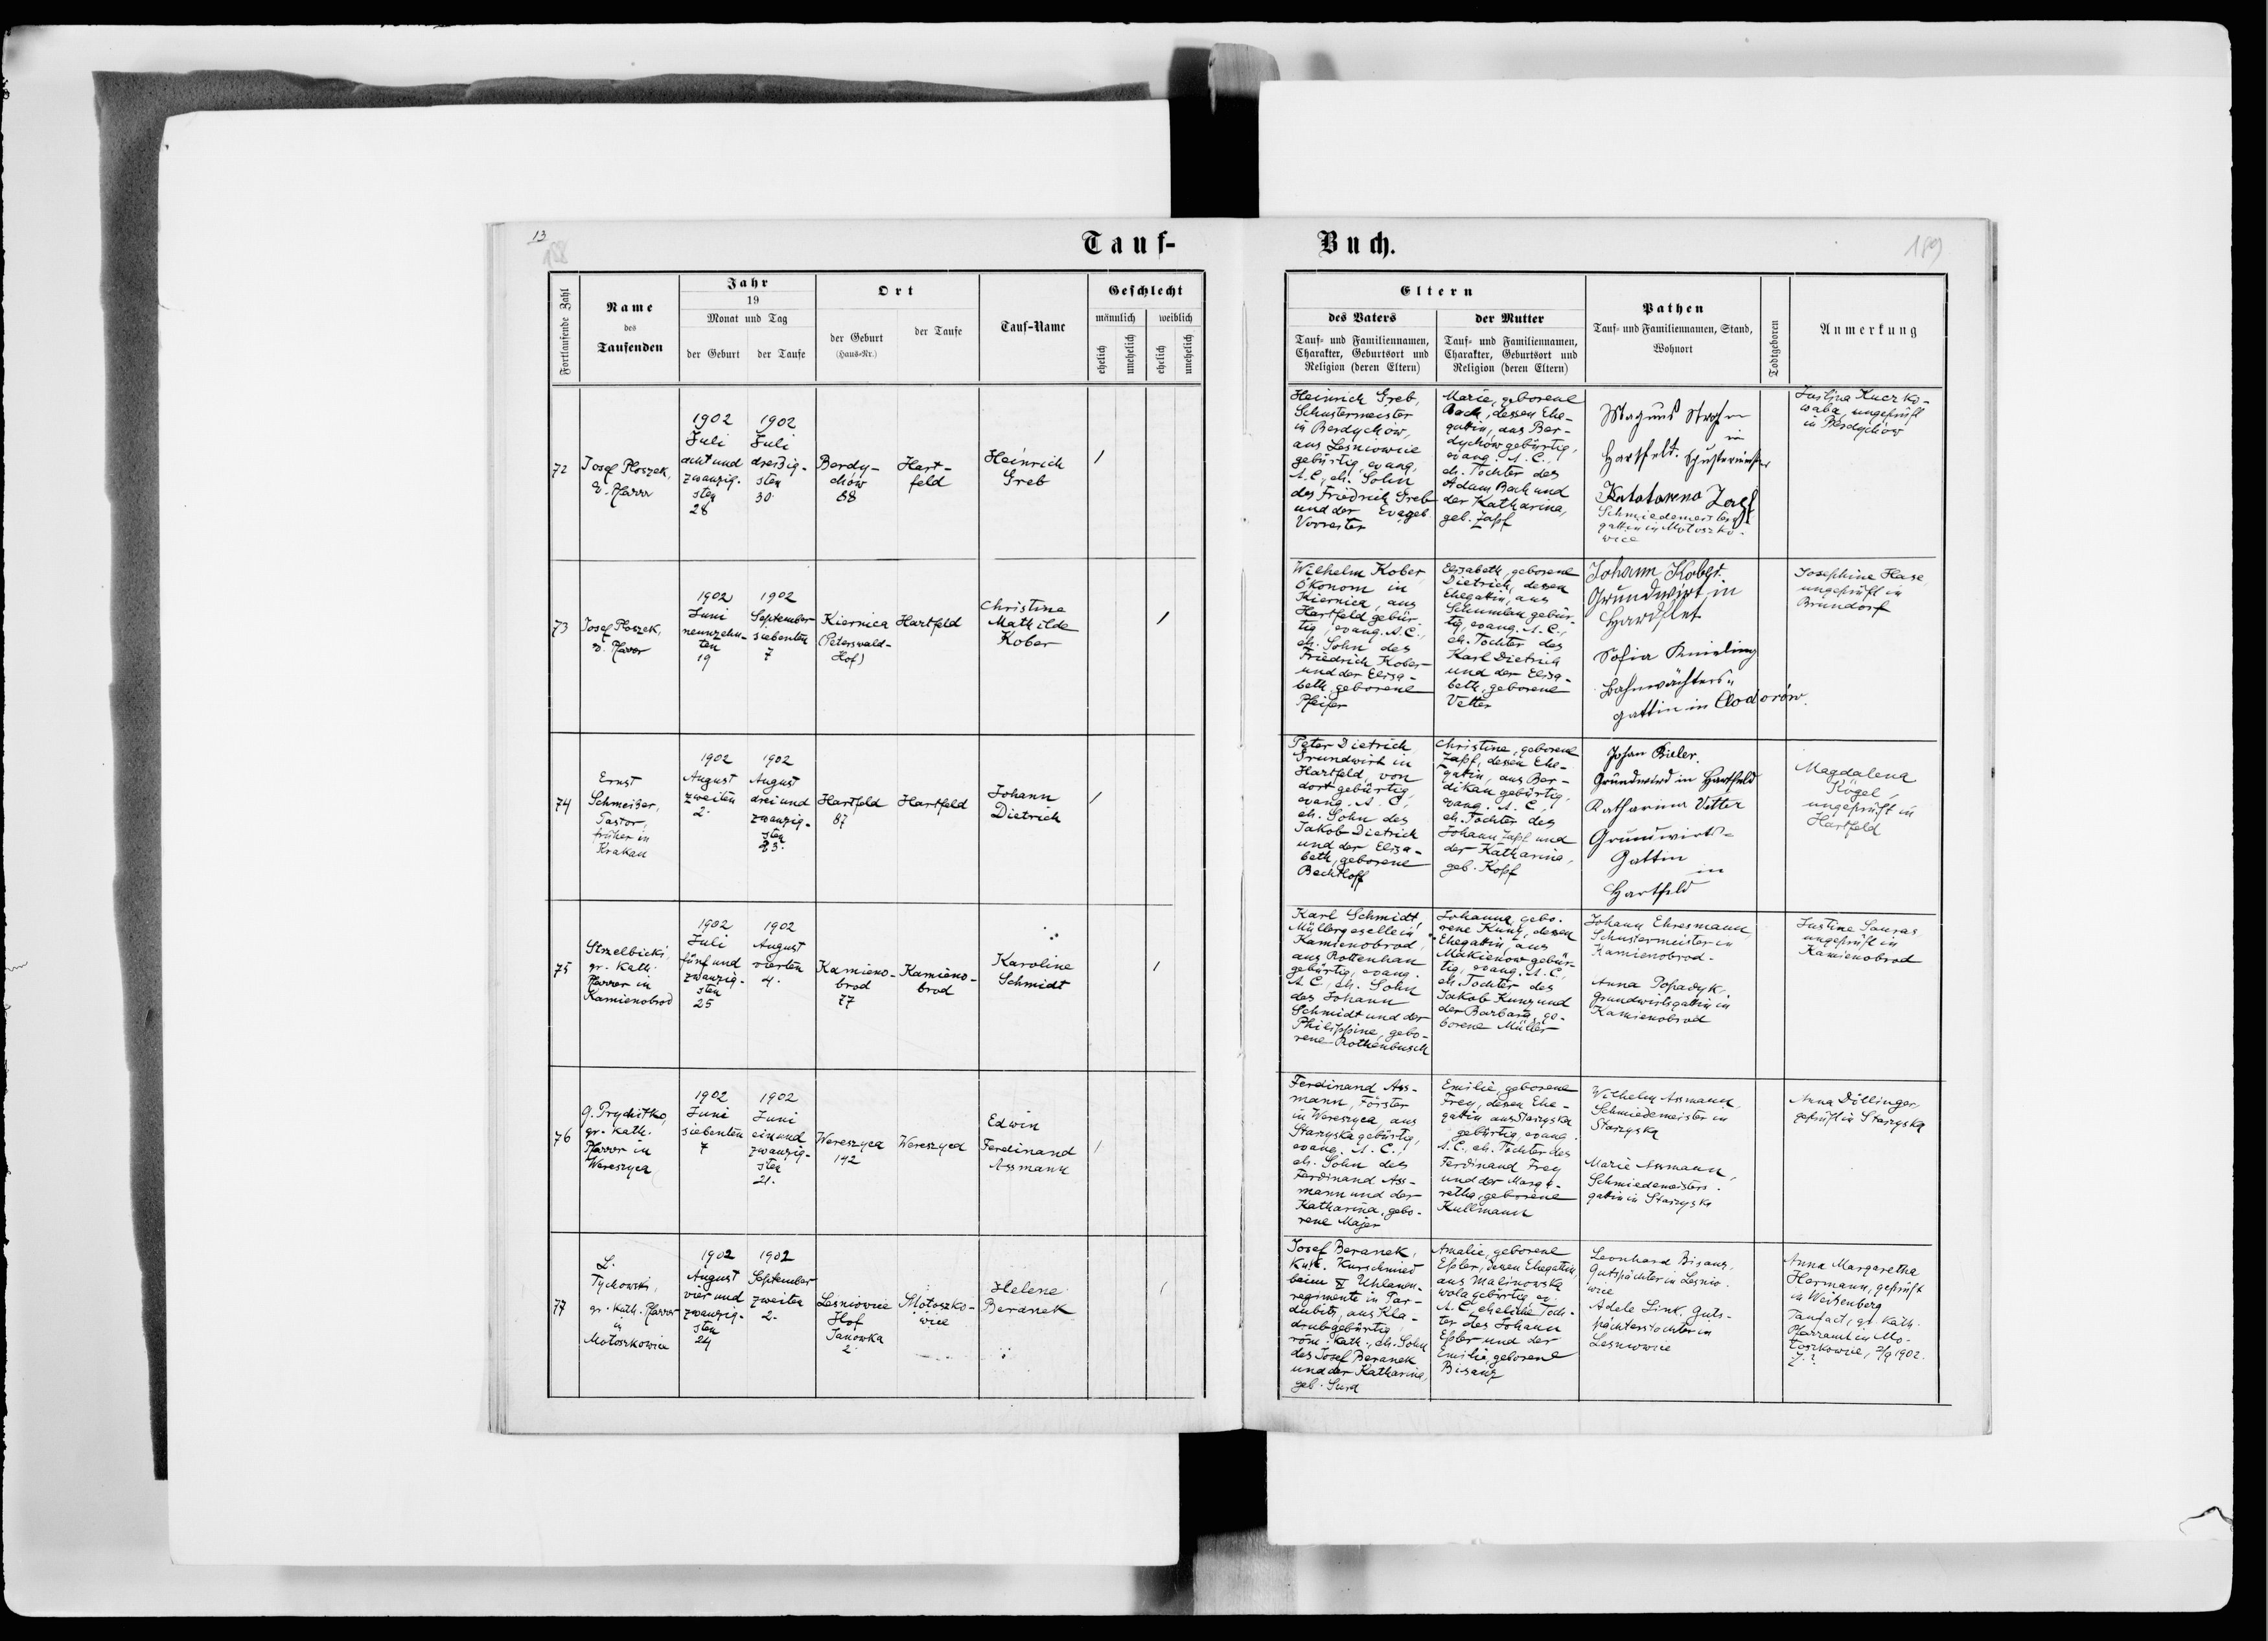 13
188
Tauf-
Buch.
189
Fortlaufende Zahl
Name
des
Taufenden
Jahr
19
Monat und Tag
der Geburt
der Taufe
Ort
der Geburt
(Haus-Nr.)
der Taufe
Tauf-Name
Geschlecht
männlich
weiblich
ehelich
unehelich
ehelich
unehelich
Eltern
des Vaters
Tauf- und Familiennamen,
Charakter, Geburtsort und
Religion (deren Eltern)
der Mutter
Tauf- und Familiennamen,
Charakter, Geburtsort und
Religion (deren Eltern)
Pathen
Tauf- und Familiennamen, Stand,
Wohnort
Todtgeboren
Anmerkung
72
Josef Ploszek,
ev. Pfarrer
1902
Juli
acht und
zwanzig-
sten
28
1902
Juli
dreißig-
sten
30
Berdy-
chów
88
Hart-
feld
Heinrich
Greb
/
Heinrich Greb,
Schustermeister
in Berdychów,
aus Lesniowice
gebürtig, evang.
A.C., eh. Sohn
des Friedrich Greb
und der Eva, geb.
Vorreiter
Marie, geborene
Bach, dessen Ehe-
gattin, aus Ber-
dychów gebürtig,
evang. A.C.,
eh. Tochter des
Adam Bach und
der Katharina,
geb. Zapf
Magnus
in
Hartfeld. Schustermeister
Zapf
Schmiedemeisters-
gattin in Motoszko-
wice
Justina Kuczko-
waba, ungeprüft
in Berdychów
73
Josef Ploszek,
ev. Pfarrer
1902
Juni
neunzehn-
ten
19
1902
September
siebenten
7
Kiernica
(Peterswald-
Hof)
Hartfeld
Christine
Mathilde
Kober
/
Wilhelm Kober,
Ökonom in
Kiernica, aus
Hartfeld gebür-
tig, evang. A.C.,
eh. Sohn des
Friedrich Kober
und der Elisa-
beth, geborene
Pfeifer
Elisabeth, geborene
Dietrich, dessen
Ehegattin, aus
Schumlau gebür-
tig, evang. A.C.,
eh. Tochter des
Karl Dietrich
und der Elisa-
beth, geborene
Vetter
Johann Kober
Grundwirt in
Hardflet
Sofia Knieling
Bahnwächters-
gattin in Clodorów.
Josephine Hase
ungeprüft in
Brundorf
74
Ernst
Schmeißer,
Pastor,
früher in
Krakau
1902
August
zweiten
2.
1902
August
drei und
zwanzig-
sten
23.
Hartfeld
87
Hartfeld
Johann
Dietrich
/
Peter Dietrich
Grundwirt in
Hartfeld, von
dort gebürtig,
evang. A.C.,
eh. Sohn des
Jakob Dietrich
und der Elisa-
beth, geborene
Bechtloff
Christine, geborene
Zapf, dessen Ehe-
gattin, aus Ber-
dikau gebürtig,
evang. A.C.,
eh. Tochter des
Johann Zapf und
der Katharina,
geb. Kopf
Johan Bieler.
Grundwird in Hartfeld
Katharina Vetter
Grundwirts-
Gattin
in
Hartfeld
Magdalena
Kögel,
ungeprüft in
Hartfeld
75
Strzelbicki,
gr. kath.
Pfarrer in
Kamienobrod
1902
Juli
fünf und
zwanzig-
sten
25
1902
August
vierten
4.
Kamieno-
brod
77
Kamieno-
brod
Karoline
Schmidt
/
Karl Schmidt,
Müllergeselle in
Kamienobrod,
aus Rottenhan
gebürtig, evang.
A.C., eh. Sohn
des Johann
Schmidt und der
Philippine, gebo-
rene Rothenbusch
Johanna, gebo-
rene Kunz, dessen
Ehegattin, aus
Makienow gebür-
tig, evang. A.C.,
eh. Tochter des
Jakob Kunz und
der Barbara, ge-
borene Müller
Johann Ehresmann,
Schustermeister in
Kamienobrod.
Anna Popadyk,
Grundwirtsgattin in
Kamienobrod
Justine Sauras
ungeprüft in
Kamienobrod
76
G. Prychitko,
gr. kath.
Pfarrer in
Wereszyca
1902
Juni
siebenten
7
1902
Juni
ein und
zwanzig-
sten
21.
Wereszyca
142
Wereszyca
Edwin
Ferdinand
Assmann
/
Ferdinand Ass-
mann, Förster
in Wereszyca, aus
Starzyska gebürtig,
evang. A.C.,
eh. Sohn des
Ferdinand Ass-
mann und der
Katharina, gebo-
rene Majer
Emilie, geborene
Frey, dessen Ehe-
gattin aus Starzyska
gebürtig, evang.
A.C., eh. Tochter des
Ferdinand Frey
und der Marga-
retha, geborene
Kullmann
Wilhelm Assmann,
Schmiedemeister in
Starzyska
Marie Assmann,
Schmiedemeisters-
gattin in Starzyska
Anna Döllinger,
geprüft in Starzyska
77
L.
Tychowski,
gr. kath. Pfarrer
in
Motoszkowice
1902
August
vier und
zwanzig-
sten
24
1902
September
zweiten
2.
Lesniowice
Hof
Janowka
2
Motoszko-
wice
Helene
Beranek
/
Josef Beranek,
k. u. k. Kurschmied
beim Uhlanen-
regimente in Par-
dubitz, aus Kla-
drub gebürtig,
röm. kath., eh. Sohn
des Josef Beranek
und der Katharina,
geb. Surd
Amalie, geborene
Eßler, dessen Ehegattin,
aus Malinowska
wola gebürtig, ev.
A.C., eheliche Toch-
ter des Johann
Eßler und der
Emilie, geborene
Bisanz
Leonhard Bisanz,
Gutspächter in Lesnio-
wice
Adele Link, Guts-
pächterstochter in
Lesniowice
Anna Margaretha
Hermann, geprüft
in Weißenberg
Taufact, gr. kath.
Pfarramt in Mo-
toszkowice, 2/9 1902.